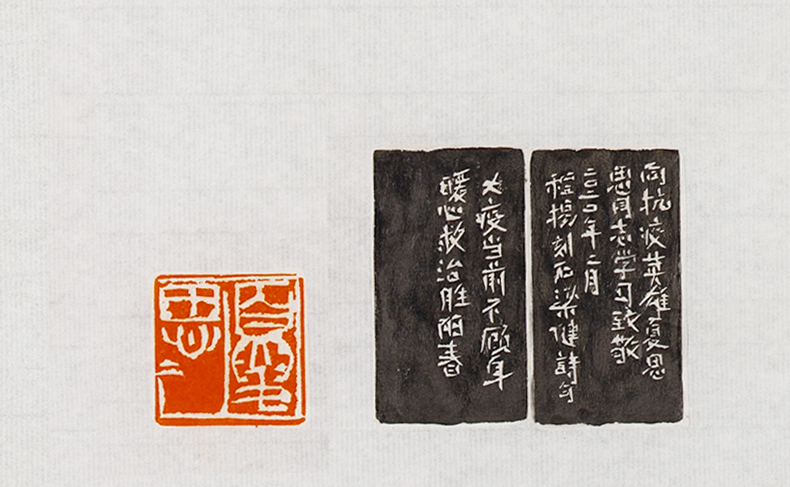 向抗疫英雄夏思
思同志学习致敬
二〇二〇年二月
程揚刻石梁健詩句
大疫当前不顾身
暖心救治胜阳春
夏
思〻